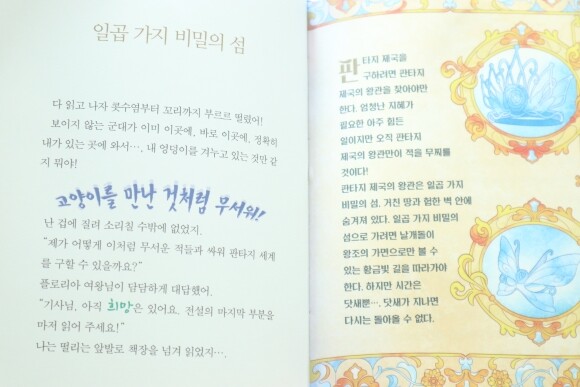 일곱 가지 비밀의 섬
다 읽고 나자 콧수염부터 꼬리까지 부르르 떨렸어!
보이지 않는 군대가 이미 이곳에, 바로 이곳에, 정확히
내가 있는 곳에 와서…. 내 엉덩이를 겨누고 있는 것만 같
지 뭐야!
고양이를 만난 것처럼 무서워!
난 겁에 질려 소리칠 수밖에 없었지.
“제가 어떻게 이처럼 무서운 적들과 싸워 판타지 세계
를 구할 수 있을까요?”
플로리아 여왕님이 담담하게 대답했어.
“기사님, 아직 희망은 있어요. 전설의 마지막 부분을
마저 읽어 주세요!”
나는 떨리는 앞발로 책장을 넘겨 읽었지….
판타지 제국을
구하려면 판타지
제국의 왕관을 찾아야만
한다. 엄청난 지혜가
필요한 아주 힘든
일이지만 오직 판타지
제국의 왕관만이 적을 무찌를
것이다!
판타지 제국의 왕관은 일곱 가지
비밀의 섬, 거친 땅과 험한 벽 안에
숨겨져 있다. 일곱 가지 비밀의
섬으로 가려면 날개돋이
왕조의 가면으로만 볼 수
있는 황금빛 길을 따라가야
한다. 하지만 시간은
닷새뿐…. 닷새가 지나면
다시는 돌아올 수 없다.